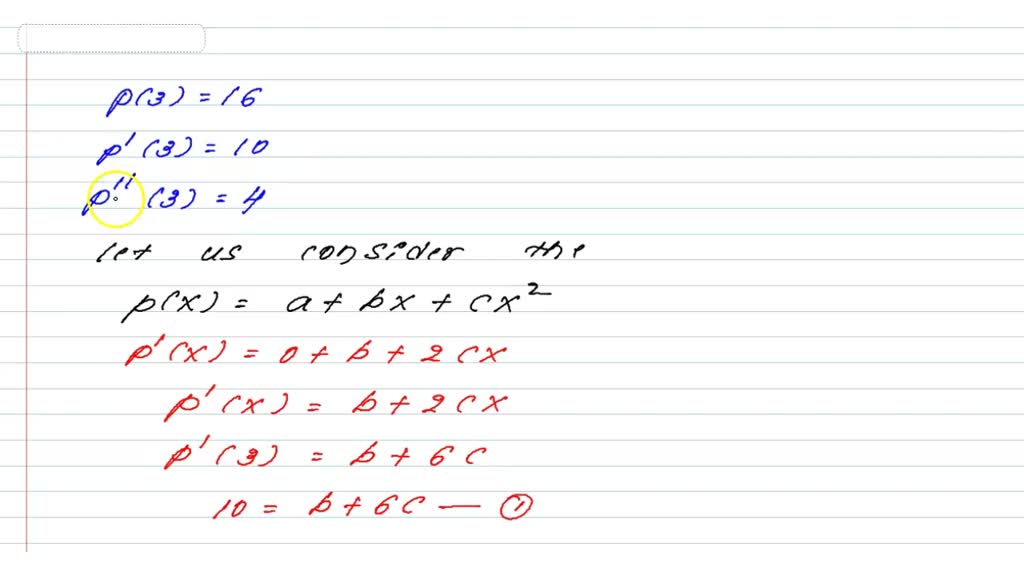 p(3) = 16
p'(3) = 10
p''(3) = 4
let us consider the
p(x) = a + bx + cx²
p'(x) = 0 + b + 2cx
p'(x) = b + 2cx
p'(3) = b + 6c
10 = b + 6c — ①